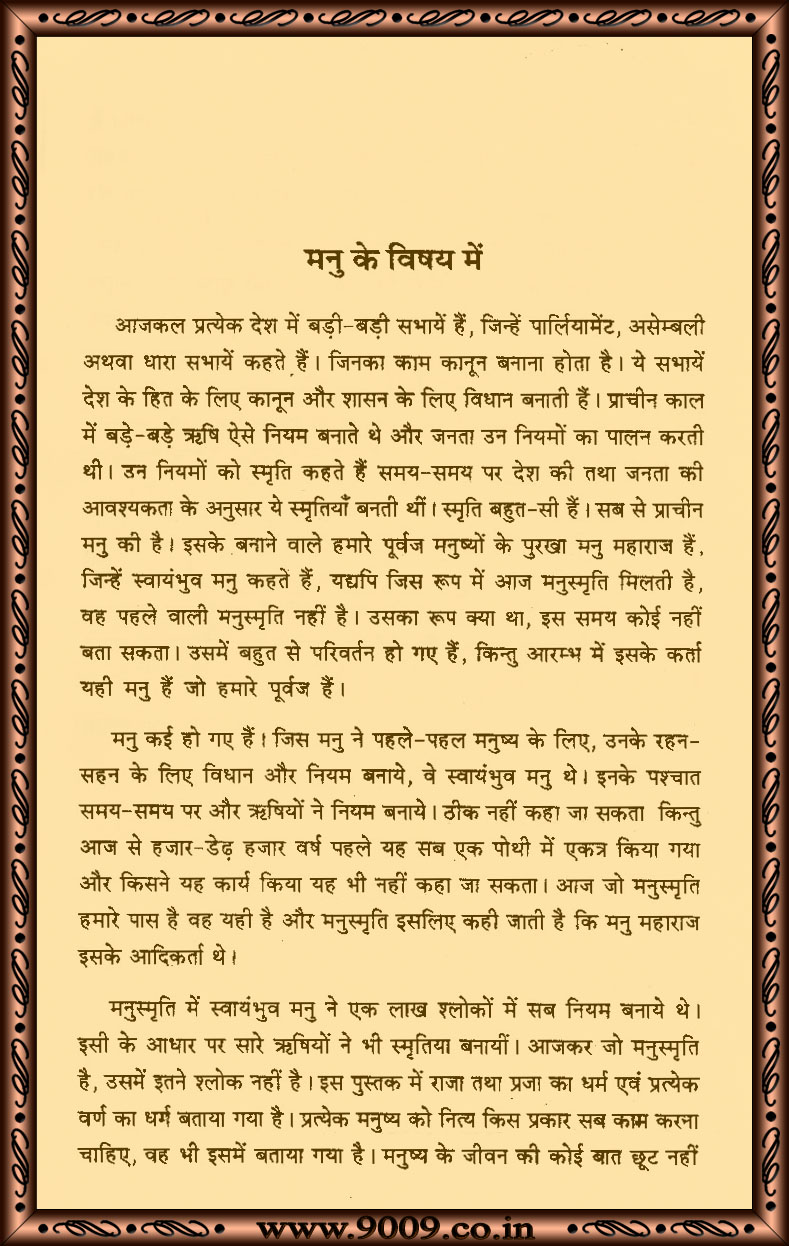 मनु के विषय में
आजकल प्रत्येक देश में बड़ी-बड़ी सभायें हैं, जिन्हें पार्लियामेंट, असेम्बली
अथवा धारा सभायें कहते हैं। जिनका काम कानून बनाना होता है। ये सभायें
देश के हित के लिए कानून और शासन के लिए विधान बनाती हैं। प्राचीन काल
में बड़े-बड़े ऋषि ऐसे नियम बनाते थे और जनता उन नियमों का पालन करती
थी। उन नियमों को स्मृति कहते हैं समय-समय पर देश की तथा जनता की
आवश्यकता के अनुसार ये स्मृतियाँ बनती थीं। स्मृति बहुत-सी हैं। सब से प्राचीन
मनु की है। इसके बनाने वाले हमारे पूर्वज मनुष्यों के पुरखा मनु महाराज हैं,
जिन्हें स्वायंभुव मनु कहते हैं, यद्यपि जिस रूप में आज मनुस्मृति मिलती है,
वह पहले वाली मनुस्मृति नहीं है। उसका रूप क्या था, इस समय कोई नहीं
बता सकता। उसमें बहुत से परिवर्तन हो गए हैं, किन्तु आरम्भ में इसके कर्ता
यही मनु हैं जो हमारे पूर्वज हैं।
मनु कई हो गए हैं। जिस मनु ने पहले-पहल मनुष्य के लिए, उनके रहन-
सहन के लिए विधान और नियम बनाये, वे स्वायंभुव मनु थे। इनके पश्चात
समय-समय पर और ऋषियों ने नियम बनाये। ठीक नहीं कहा जा सकता किन्तु
आज से हजार-डेढ़ हजार वर्ष पहले यह सब एक पोथी में एकत्र किया गया
और किसने यह कार्य किया यह भी नहीं कहा जा सकता। आज जो मनुस्मृति
हमारे पास है वह यही है और मनुस्मृति इसलिए कही जाती है कि मनु महाराज
इसके आदिकर्ता थे।
मनुस्मृति में स्वायंभुव मनु ने एक लाख श्लोकों में सब नियम बनाये थे।
इसी के आधार पर सारे ऋषियों ने भी स्मृतिया बनायीं। आजकर जो मनुस्मृति
है, उसमें इतने श्लोक नहीं है। इस पुस्तक में राजा तथा प्रजा का धर्म एवं प्रत्येक
वर्ण का धर्म बताया गया है। प्रत्येक मनुष्य को नित्य किस प्रकार सब काम करना
चाहिए, वह भी इसमें बताया गया है। मनुष्य के जीवन की कोई बात छूट नहीं
www.9009.co.in